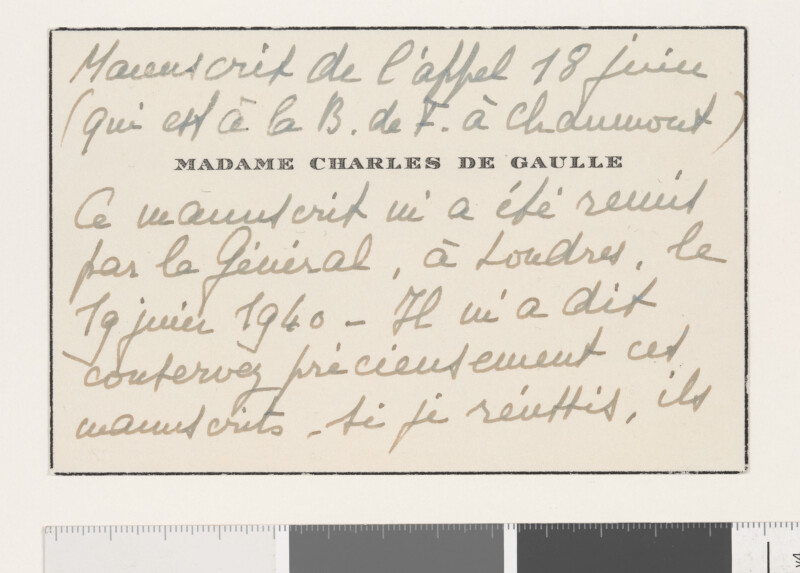 Manuscrit de l'appel 18 juin
(qui est à la B. de F. à Chaumont)
MADAME CHARLES DE GAULLE
Ce manuscrit m'a été remis
par le Général, à Londres, le
19 juin 1940 - Il m'a dit
conservez précieusement ces
manuscrits - si je réussis, ils